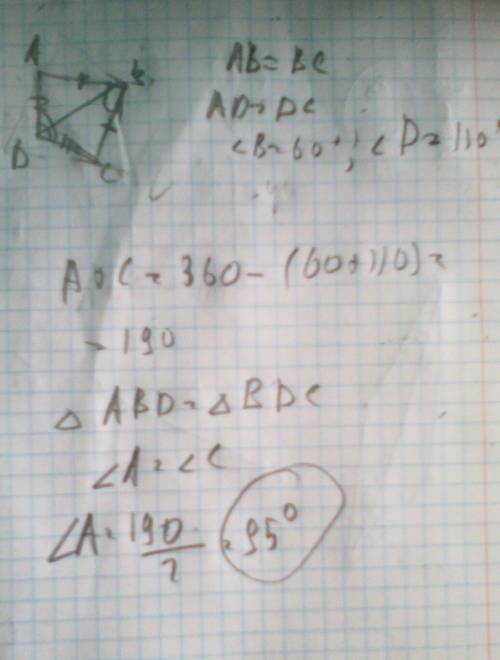 A
B
D
C
AB = BC
AD = DC
<B = 60°; <D = 110°
A и C = 360 - (60+110) =
= 190
△ ABD = △ BDC
∠A = ∠C
∠A = 190/2 = 95°